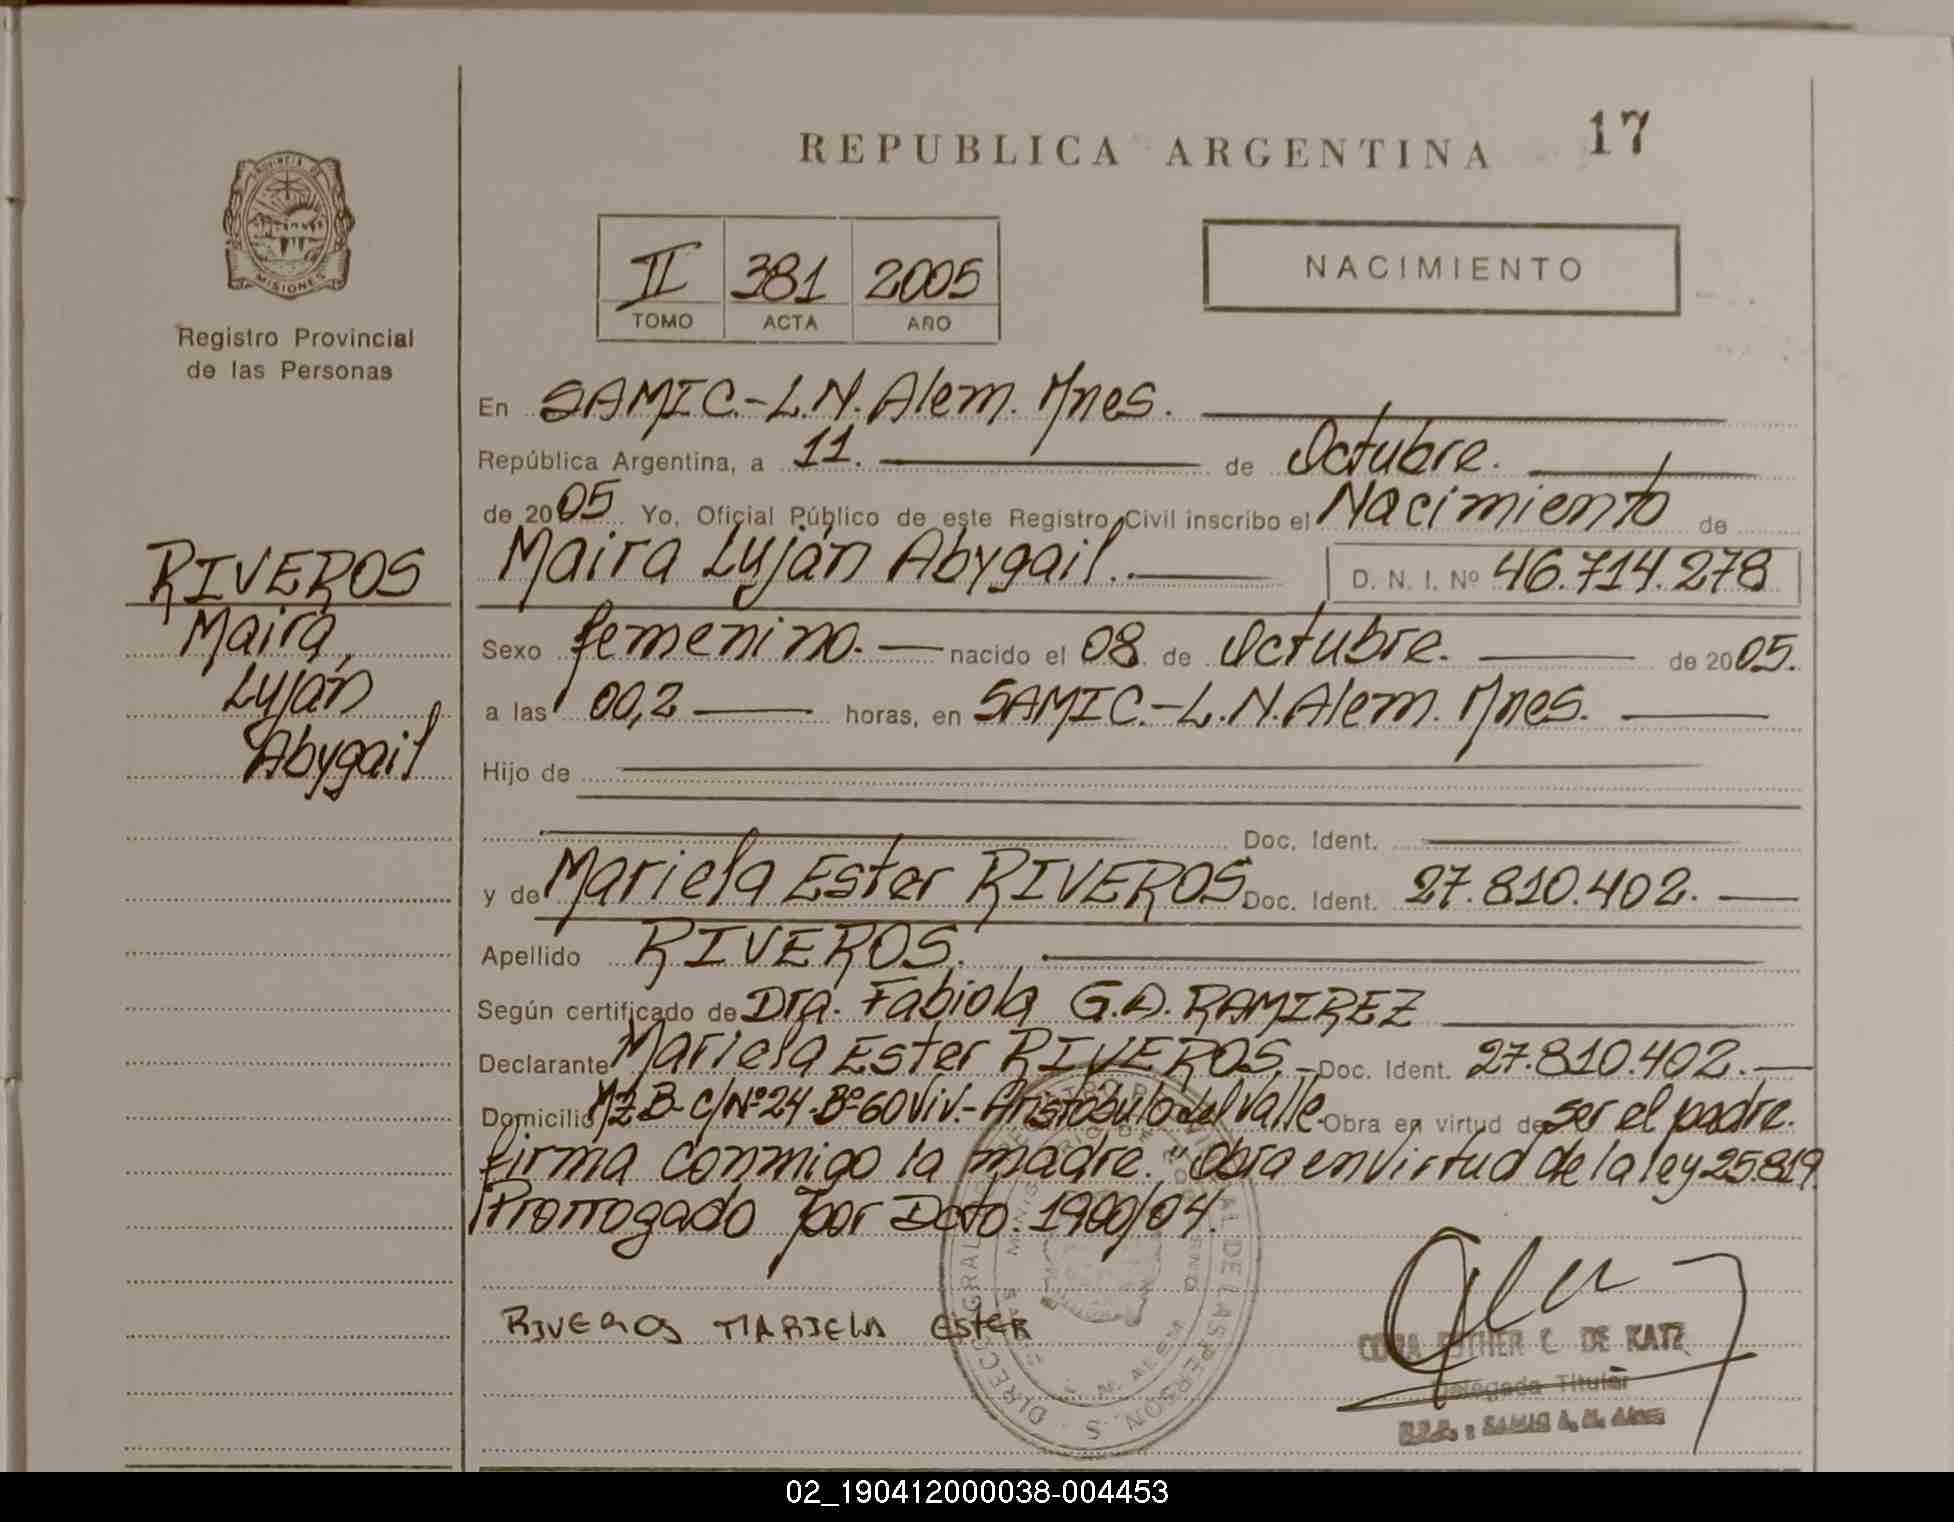 REPUBLICA ARGENTINA 17
PROVINCIA DE
MISIONES
Registro Provincial
de las Personas
II 381 2005
TOMO ACTA AÑO
NACIMIENTO
En SAMIC.-L.N.Alem. Mnes.
República Argentina, a 11. de Octubre.
de 2005 Yo, Oficial Público de este Registro Civil inscribo el Nacimiento de
RIVEROS
Maira,
Luján
Abygail
Maira Luján Abygail. D. N. I. Nº 46.714.278
Sexo femenino. nacido el 08 de Octubre. de 2005.
a las 00,2 horas, en SAMIC.-L.N.Alem. Mnes.
Hijo de
Doc. Ident.
y de Mariela Ester RIVEROS Doc. Ident. 27.810.402.
Apellido RIVEROS.
Según certificado de Dra. Fabiola G.A. RAMIREZ
Declarante Mariela Ester RIVEROS. Doc. Ident. 27.810.402.
Domicilio Mz B- C/Nº24-Bº60Viv.- Aristóbulo del Valle. Obra en virtud de ser el padre.
firma conmigo la madre." Obra en virtud de la ley 25.819.
Prorrogado por Dcto. 1900/04.
RIVEROS MARIELA ESTER
ESTHER C. DE KATZ
Delegada Titular
02_190412000038-004453